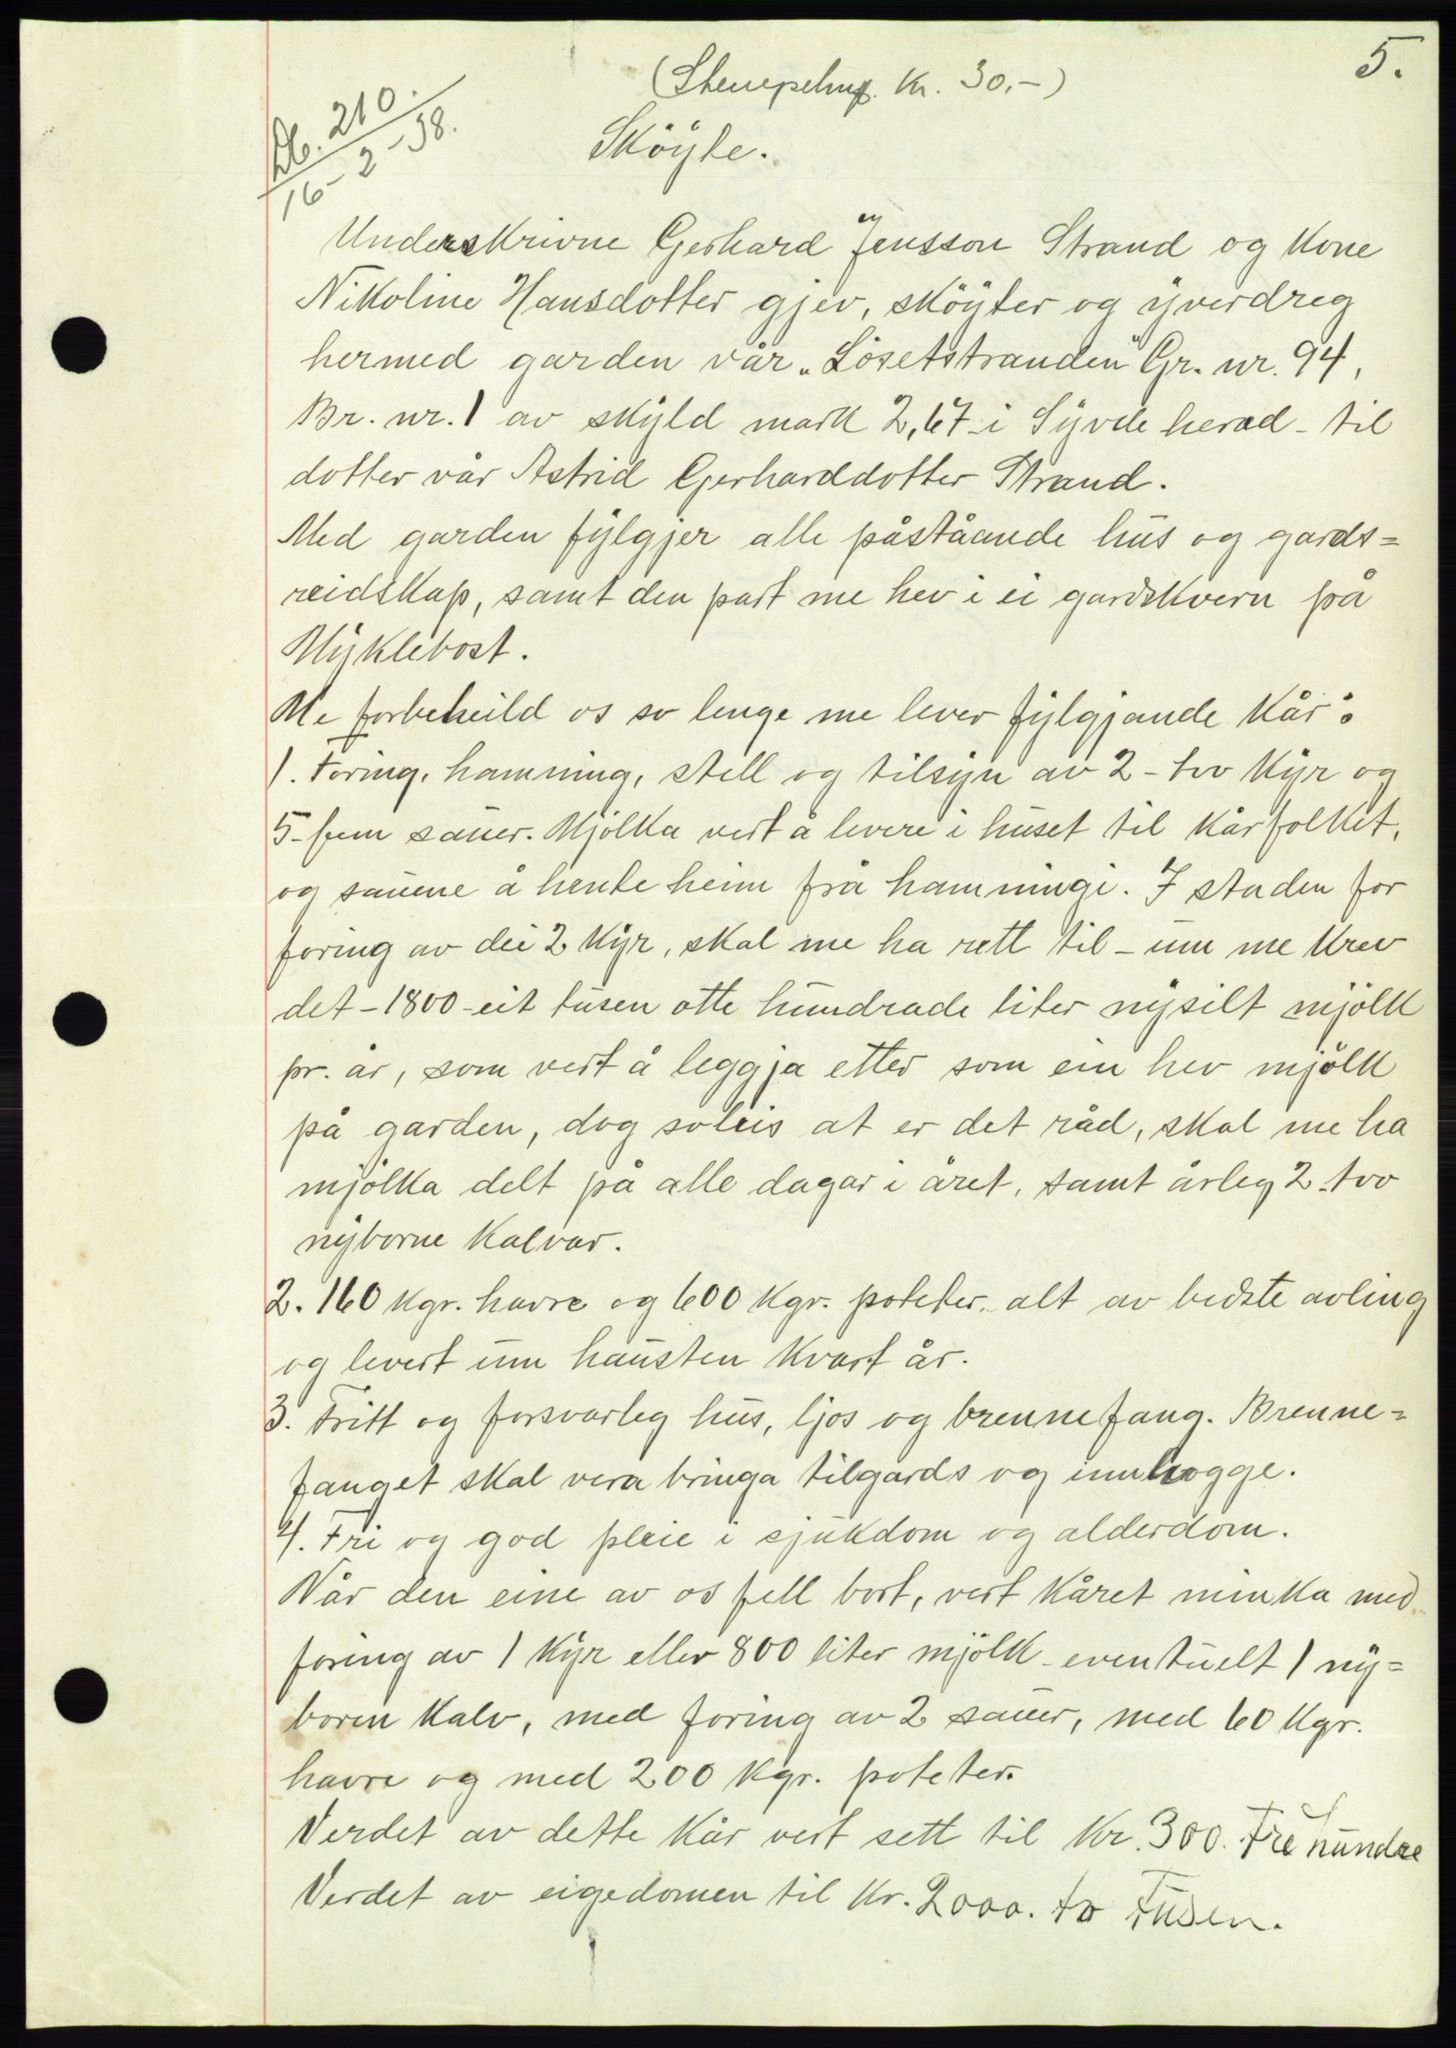 5.
(Stempelmp. Kr. 30,-)
Db. 210.
16-2-38.
Sköyte.
Underskrivne Gerhard Jensson Strand og Kone
Nikoline Hansdotter gjev, sköyter og yverdreg
hermed garden vår „Lösetstranden" Gr. nr. 94,
Br. nr. 1 av skyld mark 2,67 i Syvde herad - til
dotter vår Astrid Gerharddotter Strand.
Med garden fylgjer alle påståande hus og gards=
reidskap, samt den part me hev i ei gardskvern på
Myklebost.
Me forbeheild os so lenge me lever fylgjande Kår:
1. Foring, hamning, stell og tilsyn av 2 - tvo Kyr og
5 - fem sauer. Mjölka vert å levere i huset til Kårfolket,
og sauene å hente heim frå hamningi. I staden for
foring av dei 2 Kyr, skal me ha rett til - um me Krev
det - 1800 - eit tusen otte hundrade liter nysilt mjölk
pr. år, som vert å leggja etter som ein hev mjölk
på garden, dog soleis at er det råd, skal me ha
mjölka delt på alle dagar i året, samt årleg 2 - tvo
nyborne Kalvar.
2. 160 Kgr. havre og 600 Kgr. poteter, alt av bedste avling
og levert um hausten Kvart år.
3. Fritt og forsvarleg hus, ljos og brennefang. Brenne=
fanget skal vera bringa tilgards og innhogge.
4. Fri og god pleie i sjukdom og alderdom.
Når den eine av os fell bort, vert Kåret minka med
foring av 1 Kyr eller 800 liter mjölk - eventuelt 1 ny=
boren Kalv, med foring av 2 sauer, med 60 Kgr.
havre og med 200 Kgr. poteter.
Verdet av dette Kår vert sett til Kr. 300. Tre hundre
Verdet av eigedomen til Kr. 2000. to Tusen.